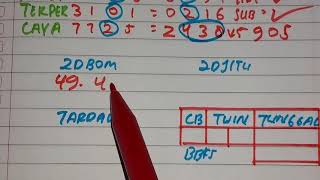 TERPER 3 1 0 1 = 0 2 1 6 SUB = ✓
CAYA 7 7 2 5 = 2 4 3 0 4 5 9 0 5
2D BOM 2D JITU
49. 4
TARDAL CB TWIN TUNGGAL
BBFS